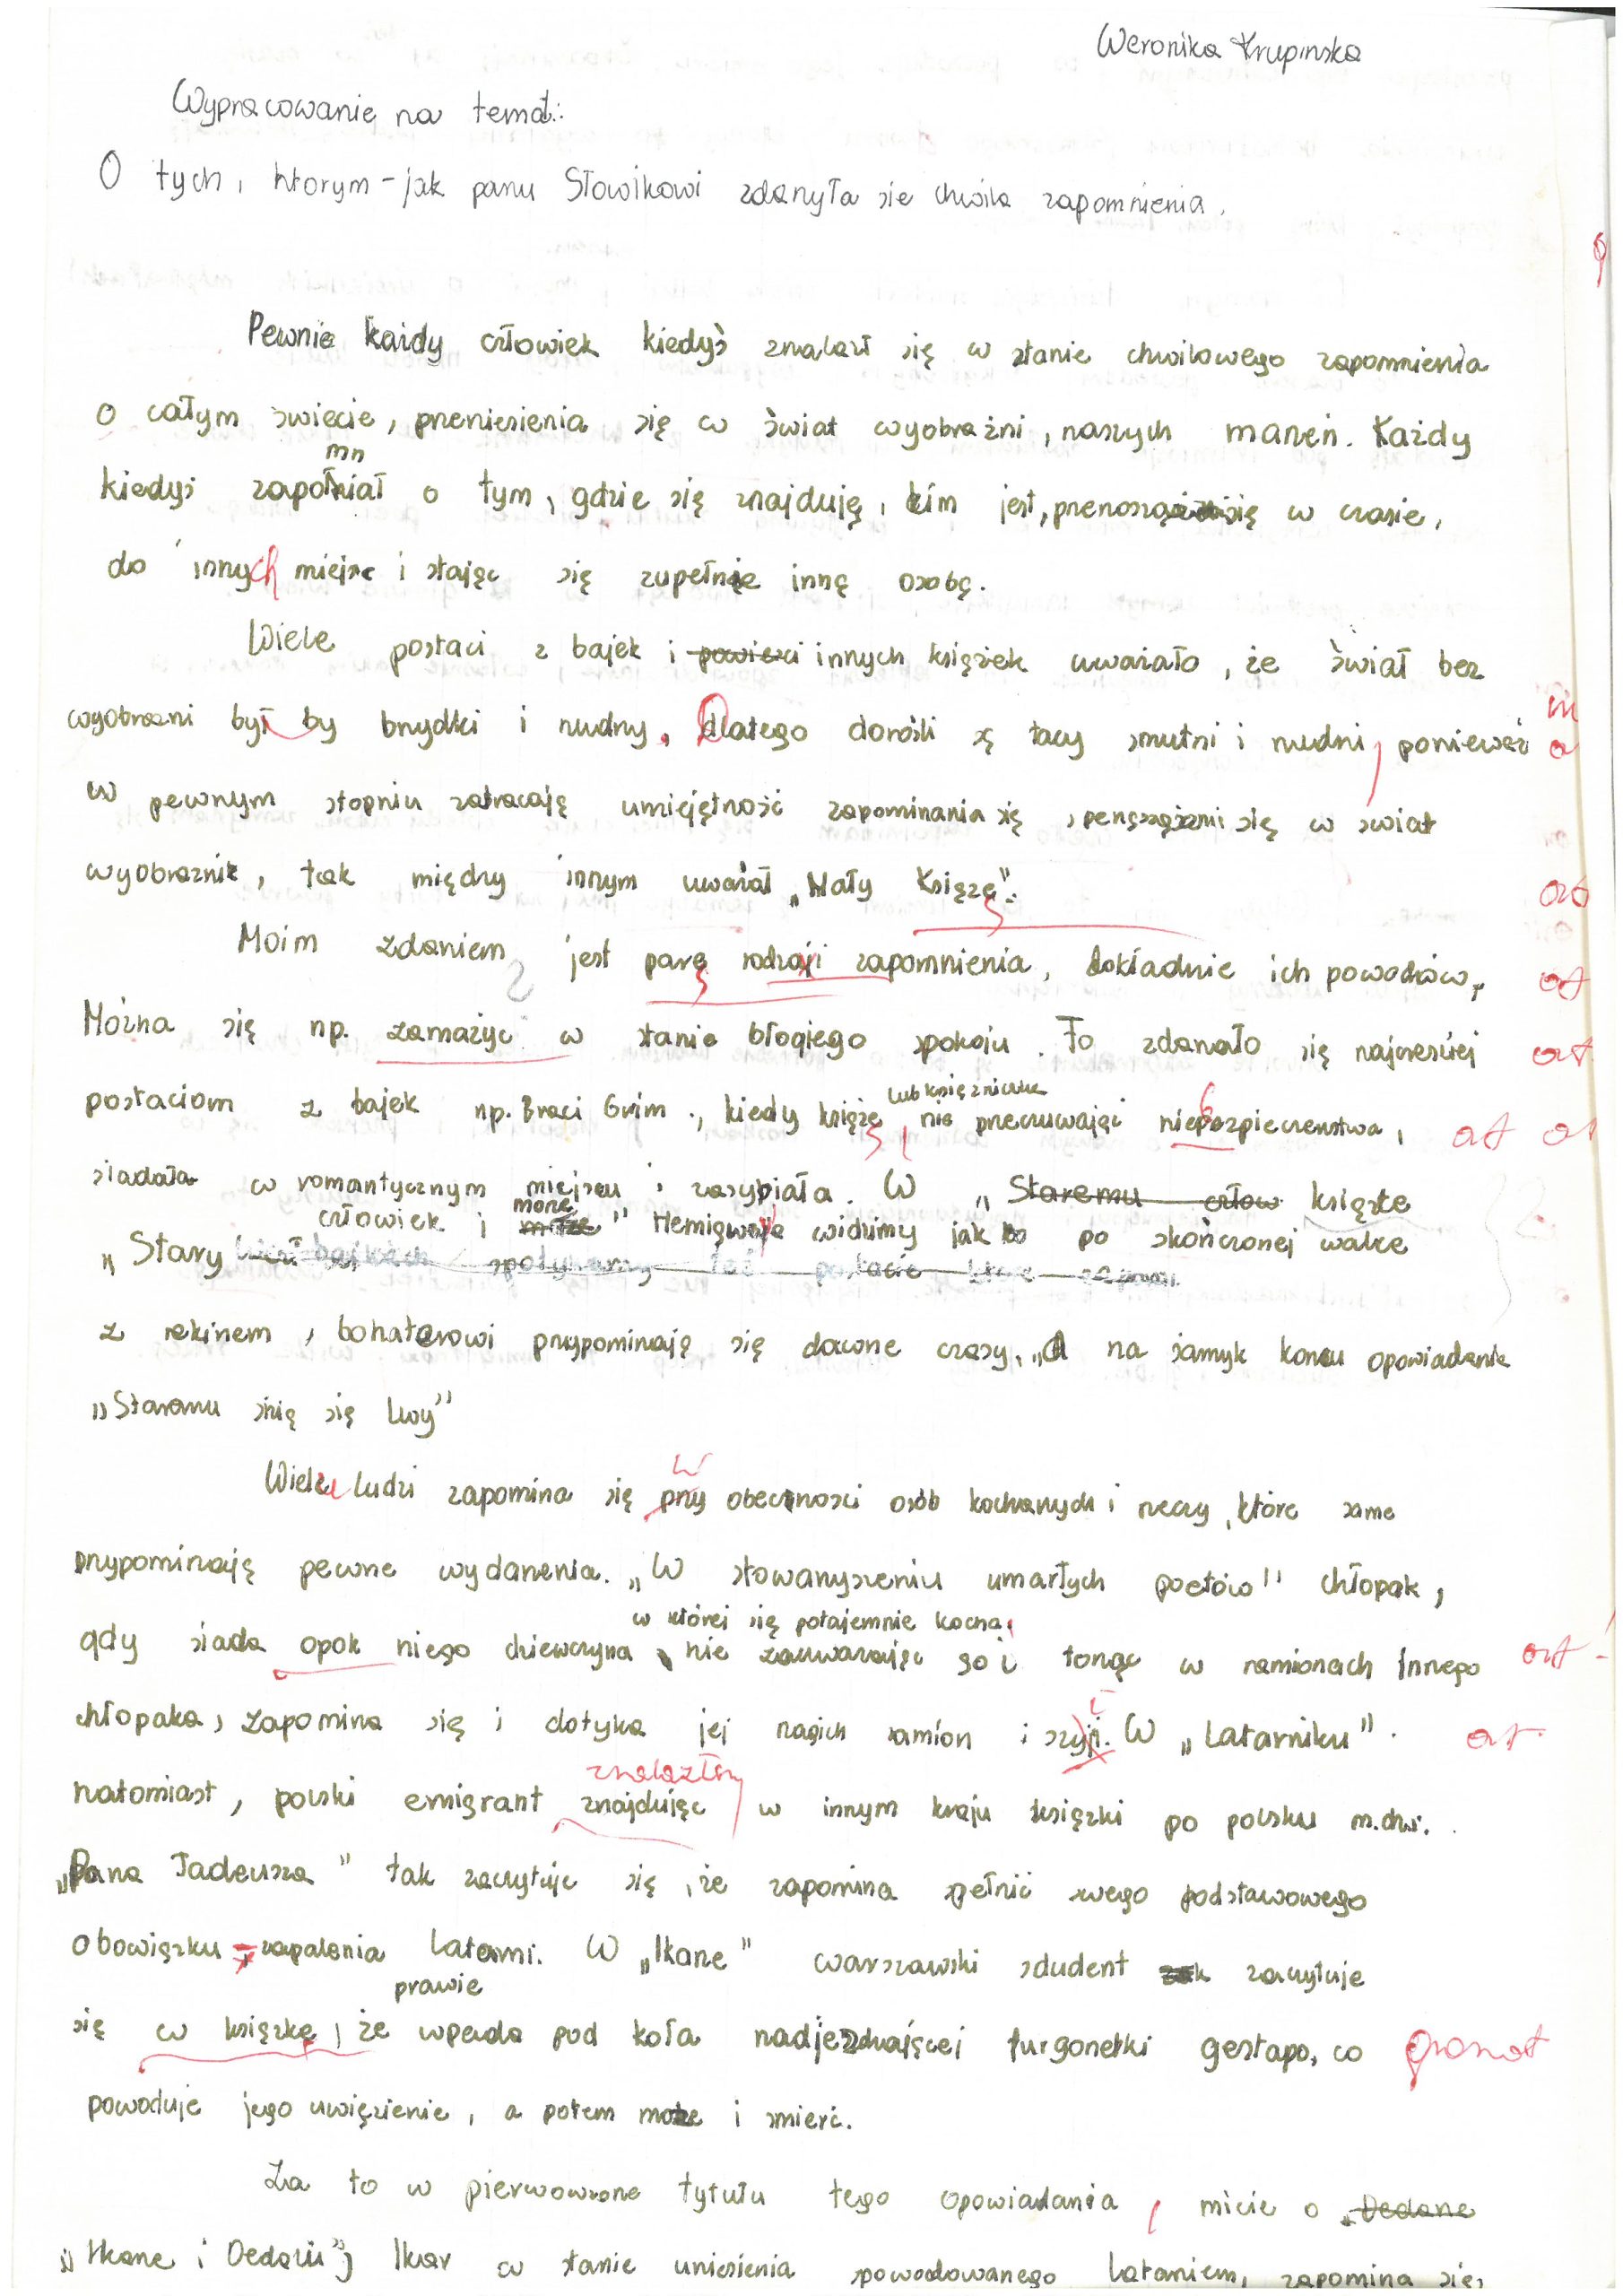 Weronika Krupinska
Wypracowanie na temat:
O tych, ktorym - jak panu Słowikowi zdarzyła sie chwila zapomnienia.
Pewnie każdy człowiek kiedyś znalazł się w stanie chwilowego zapomnienia
o całym świecie, przeniesienia się w świat wyobraźni, naszych marzeń. Każdy
mn
kiedyś zapomniał o tym, gdzie się znajduję, kim jest, przenosząc się w czasie,
do innych miejsc i stając się zupełnie inną osobą.
Wiele postaci z bajek i powieści innych książek uważało, że świat bez
wyobraźni był by brzydki i nudny. Dlatego dorośli są tacy smutni i nudni, ponieważ
w pewnym stopniu zatracają umiejętność zapominania się, się w świat
wyobraźnie, tak między innym uważał „Mały Książę".
ort
Moim zdaniem jest parę rodzaji zapomnienia, dokładnie ich powodów,
ort
Można się np. zamażyć w stanie błogiego spokoju. To zdarzało się najczęściej
ort
lub księżniczka
postaciom z bajek np. Braci Grim., kiedy książę, nie przeczuwając niebezpieczeństwa,
ort
siadała w romantycznym miejscu i zasypiała. W „Staremu człow książce
człowiek i morze
„Stary " Hemigwaya widzimy jak to po skończonej walce
z rekinem, bohaterowi przypominają się dawne czasy, „A na samyk koncu opowiadanie
„Staremu śnią się lwy"
w
Wiele ludzi zapomina się przy obecności osób kochanych i rzeczy, które same
przypominają pewne wydarzenia. „W stowarzyszeniu umarłych poetów" chłopak,
w której się potajemnie kocha,
gdy siada opok niego dziewczyna nie zauważając go i tonąc w ramionach innego
ort!
chłopaka, zapomina się i dotyka jej nagich ramion i szyji. W „Latarniku"
ort
znalazłszy
natomiast, polski emigrant znajdując w innym kraju książki po polsku m.in.
„Pana Tadeusza" tak zaczytuje się, że zapomina spełnić swego podstawowego
obowiązku - zapalenia latarni. W „Ikarze" warszawski sdudent zaczytuje
prawie
się w książkę, że wpada pod koła nadjeżdżającej furgonetki gestapo, co
gramat
powoduje jego uwięzienie, a potem może i smierć.
Za to w pierwowzorze tytułu tego opowiadania, micie o „Dedarze
„Ikarze i Dedalu", Ikar w stanie uniesienia spowodowanego lataniem, zapomina się,